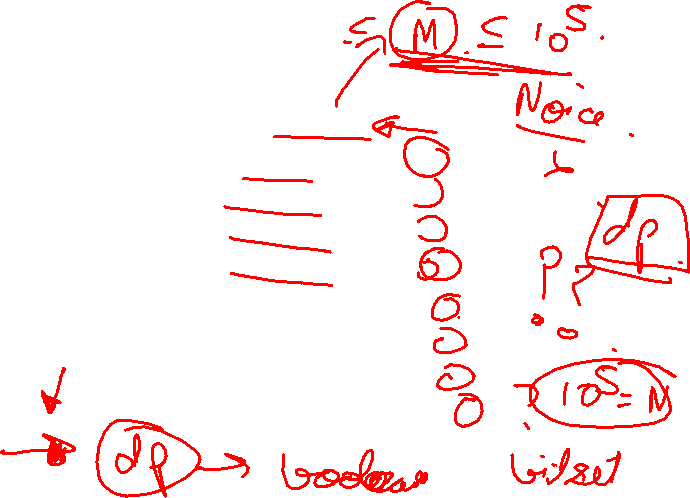 ≤ M ≤ 10^5.
Noice
dp
p
10^5 = M
dp → boolean bitset